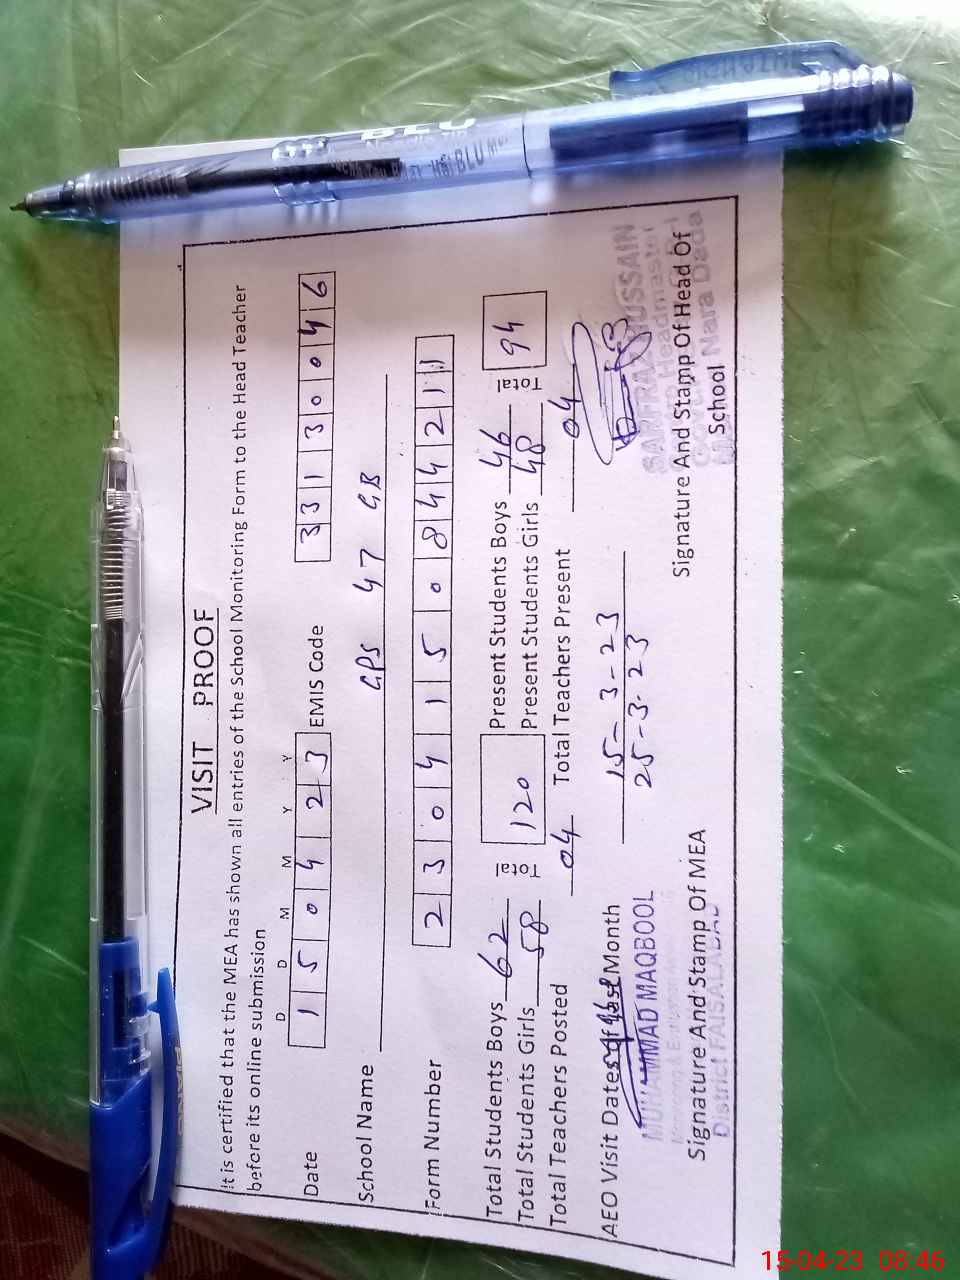 VISIT PROOF
It is certified that the MEA has shown all entries of the School Monitoring Form to the Head Teacher
before its online submission
D D M M Y Y
Date 1 5 0 4 2 3 EMIS Code 3 3 1 3 0 0 4 6
School Name GPS 47 GB
Form Number 2 3 0 4 1 5 0 8 4 4 2 1 1
Total Students Boys 62 Total 120 Present Students Boys 46 Total 94
Total Students Girls 58 Present Students Girls 48
Total Teachers Posted 04 Total Teachers Present 04
AEO Visit Dates of last Month 15-3-23
25-3-23
MUHAMMAD MAQBOOL
Signature And Stamp Of MEA
District FAISALABAD
SARFRAZ HUSSAIN
Headmaster
Signature And Stamp Of Head Of
School
Nara Dada
BLU
Needle Tip
BLU
15-04-23 08:46